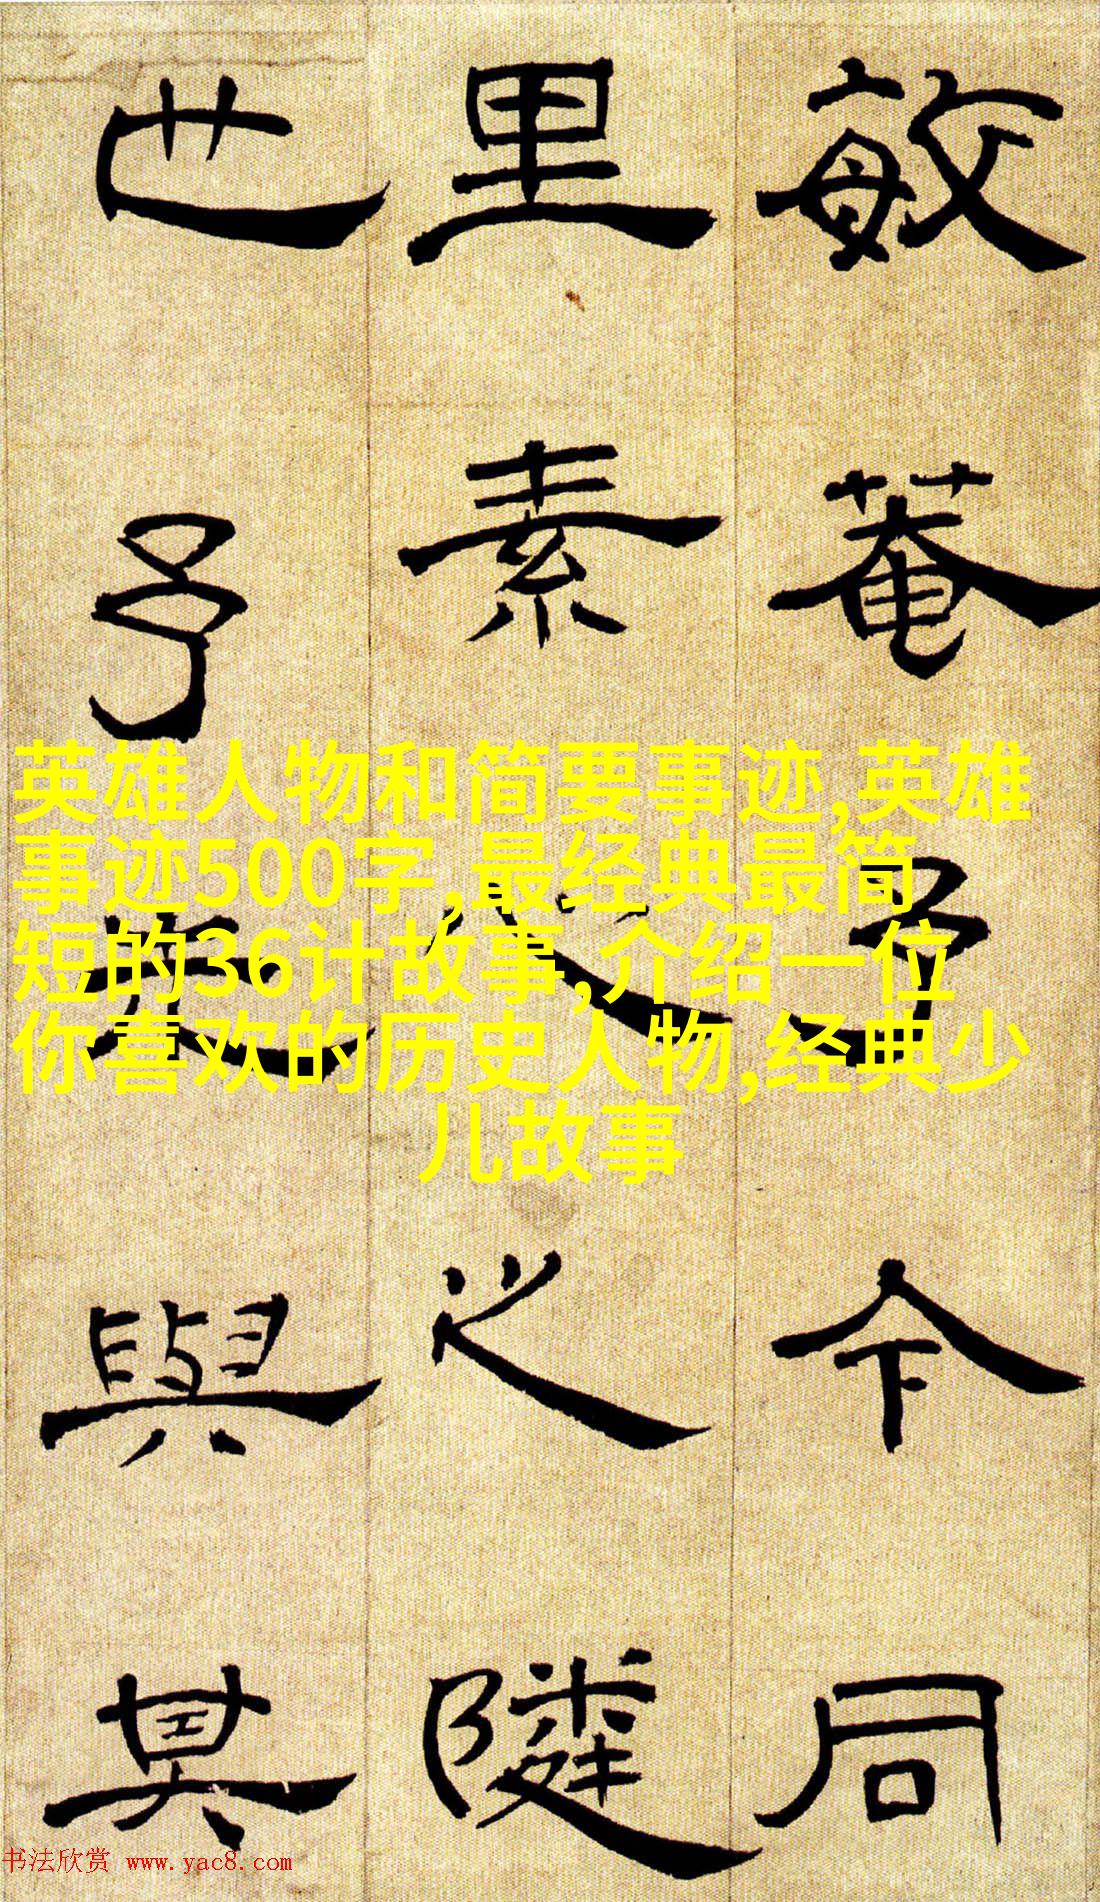 敏菴子今同
里素之隆
也予與其
英雄人物和简要事迹,英雄
事迹500字,最经典最简
短的36计故事,介绍一位
你喜欢的历史人物,经典少
儿故事
书法欣赏 www.yac8.com